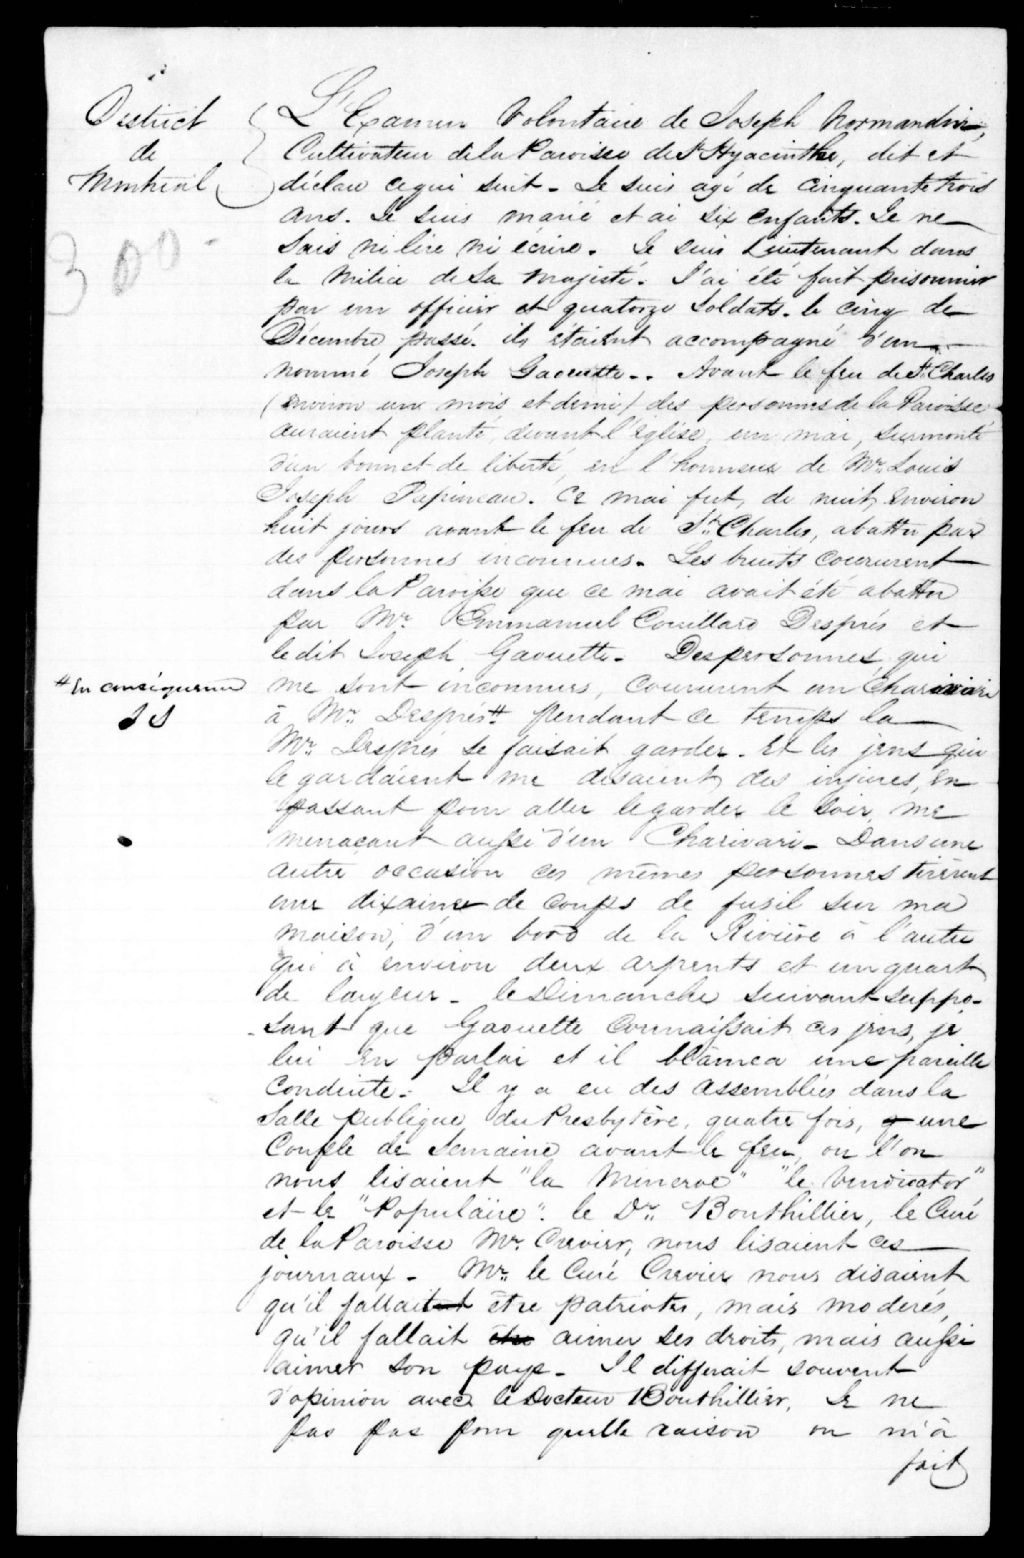 District
de
Montréal
300-
L'Examen Volontaire de Joseph Normandin,
Cultivateur de la Paroisse de St Hyacinthe, dit et
déclare ce qui suit - Je suis agé de cinquante trois
ans. Je suis marié et ai six enfants. Je ne
sais ni lire ni écrire. Je suis Lieutenant dans
la Milice de Sa Majesté. J'ai été fait prisonnier
par un officier et quatorze Soldats. le cinq de
Décembre passé. ils étaient accompagné d'un
nommé Joseph Gaouette.. Avant le feu de St Charles
(environ un mois et demi) des personnes de la Paroisse
auraient planté, devant l'église, un mai, surmonté
d'un bonnet de liberté, en l'honneur de Mr. Louis
Joseph Papineau. Ce mai fut, de nuit, environ
huit jours avant le feu de St. Charles, abattu par
des personnes inconnues. Les bruits coururent
dans la Paroisse que ce mai avait été abattu
par Mr. Emmanuel Couillard Després et
le dit Joseph Gaouette. Des personnes, qui
# En conséquence
me sont inconnues, coururent un charivari
à Mr. Després # pendant ce temps la
J S
Mr. Després se faisait garder. Et les jens qui
le gardaient me disaient des injures, en
passant pour aller le garder le soir, me
menaçant aussi d'un Charivari - Dans une
autre occasion ces mêmes personnes tirèrent
une dixaine de coups de fusil sur ma
maison, d'un bord de la Rivière à l'autre
qui à environ deux arpents et un quart
de largeur - le Dimanche suivant suppo-
-sant que Gaouette connaissait ces jens, je
lui en parlai et il blâmea une pareille
Conduite. Il y a eu des assemblées dans la
Salle publique du Presbytère, quatre fois, une
Couple de Semaine avant le feu, ou l'on
nous lisaient "la Minerve" "le Vindicator"
et le "Populaire". le Dr. Bouthillier, le Curé
de la Paroisse Mr. Crevier, nous lisaient ces
journaux - Mr. le Curé Crevier nous disaient
qu'il fallait être patriotes, mais moderés,
qu'il fallait être aimer ses droits, mais aussi
aimer son pays - Il differait souvent
d'opinion avec le Docteur Bouthillier. Je ne
pas pas pour quelle raison on m'à
fait